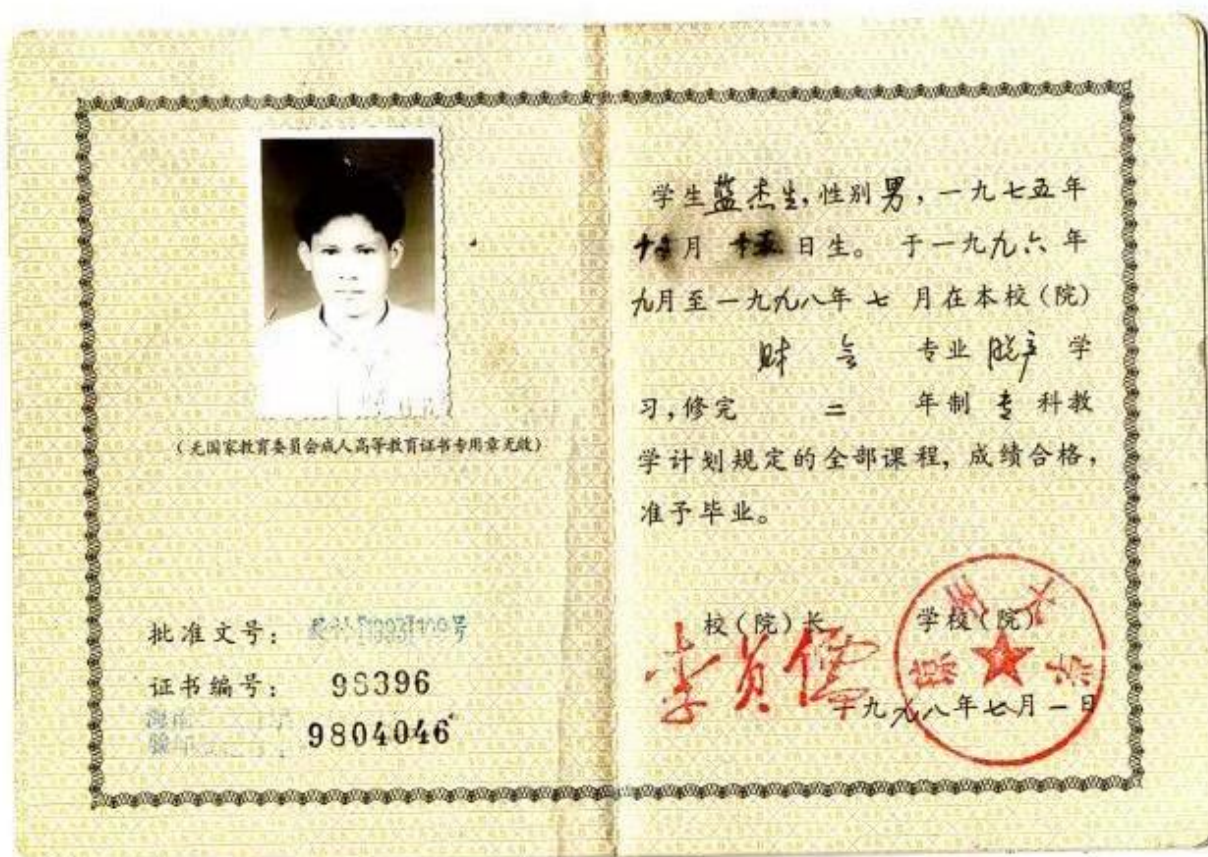 (无国家教育委员会成人高等教育证书专用章无效)
批准文号:
证书编号: 98396
9804046
学生蓝杰生,性别男,一九七五年
月 日生。于一九九六年
九月至一九九八年七月在本校(院)
财会 专业 脱产 学
习,修完 二 年制 专 科教
学计划规定的全部课程,成绩合格,
准予毕业。
校(院)长
学校(院)
一九九八年七月一日
琼州大学